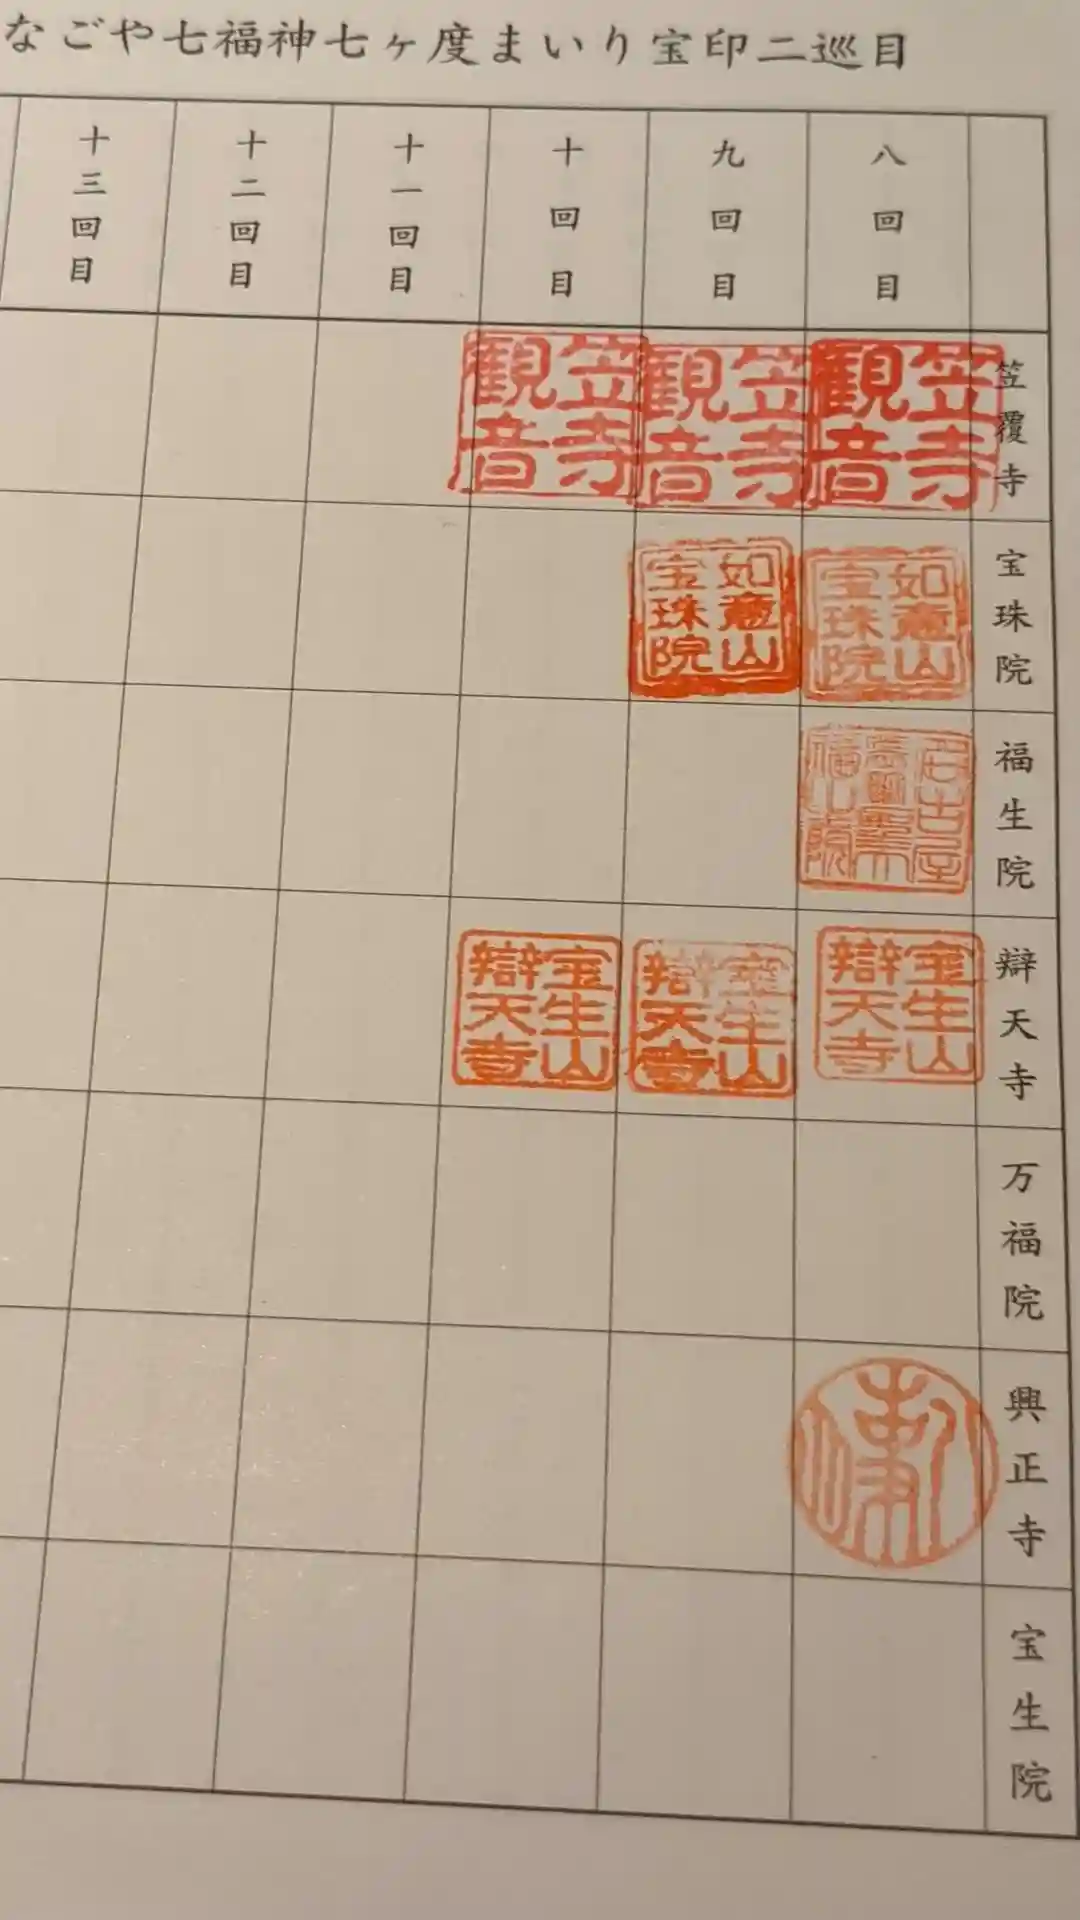 なごや七福神七ヶ度まいり宝印二巡目
八回目
九回目
十回目
十一回目
十二回目
十三回目
笠覆寺
笠寺観音
笠寺観音
笠寺観音
宝珠院
如意山宝珠院
如意山宝珠院
福生院
辯天寺
宝生山辯天寺
宝生山辯天寺
宝生山辯天寺
万福院
興正寺
宝生院